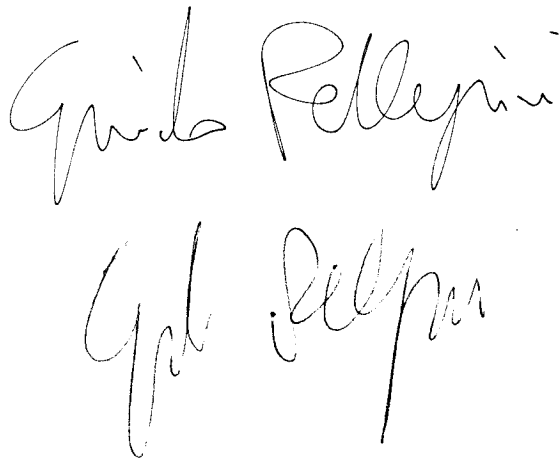 Guido Pellegrini
Guido Pellegrini